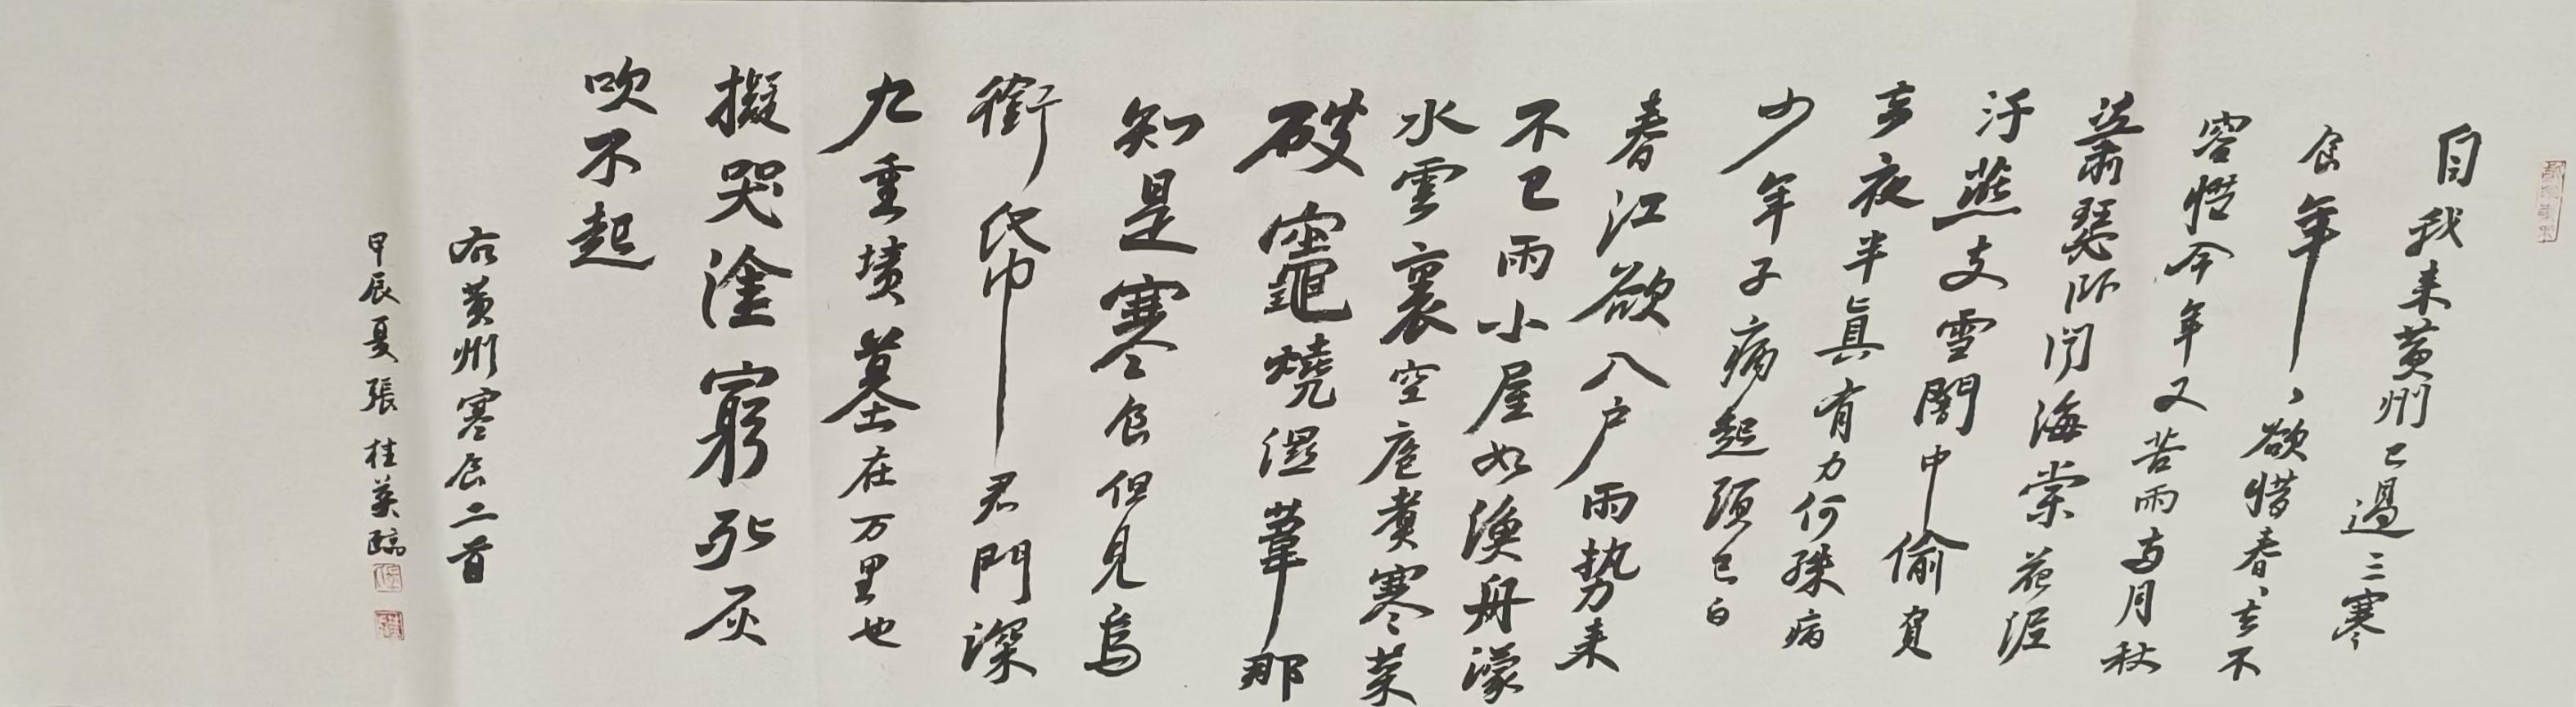 自我来黄州已過三寒
食年、欲惜春、去不
容惜今年又苦雨兩月秋
蕭瑟卧聞海棠花泥
汙燕支雪闇中偷負
去夜半真有力何殊病
少年子病起頭已白
春江欲入户雨势来
不已雨小屋如漁舟濛
水雲裏空庖煮寒菜
破竈燒濕葦那
知是寒食但見烏
銜帋君門深
九重墳墓在万里也
擬哭塗窮死灰
吹不起
右黄州寒食二首
甲辰夏張桂英臨